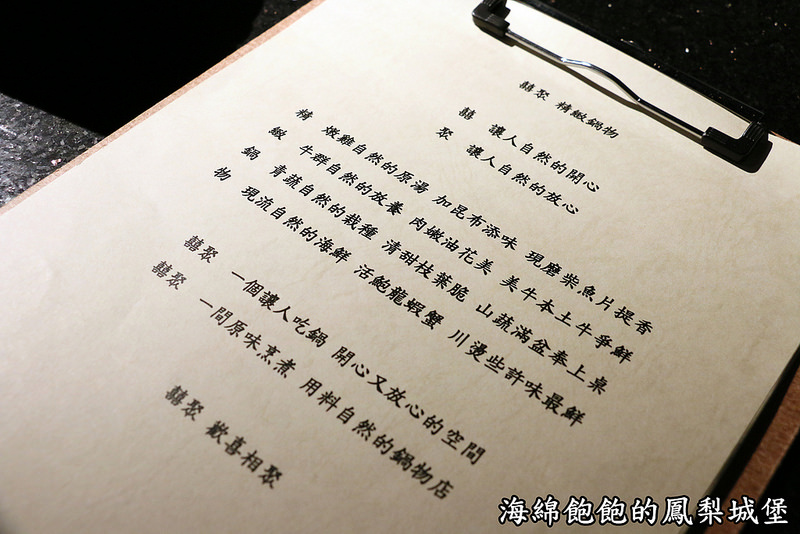 囍聚 精緻鍋物
囍 讓人自然的開心
聚 讓人自然的放心
精 燉雞自然的原湯 加昆布添味 現磨柴魚片提香
緻 牛群自然的放養 肉嫩油花美 美牛本土牛爭鮮
鍋 青蔬自然的栽種 清甜枝葉脆 山蔬滿盆奉上桌
物 現流自然的海鮮 活鮑龍蝦蟹 川燙些許味最鮮
囍聚 一個讓人吃鍋 開心又放心的空間
囍聚 一間原味烹煮 用料自然的鍋物店
囍聚 歡喜相聚
海綿飽飽的鳳梨城堡